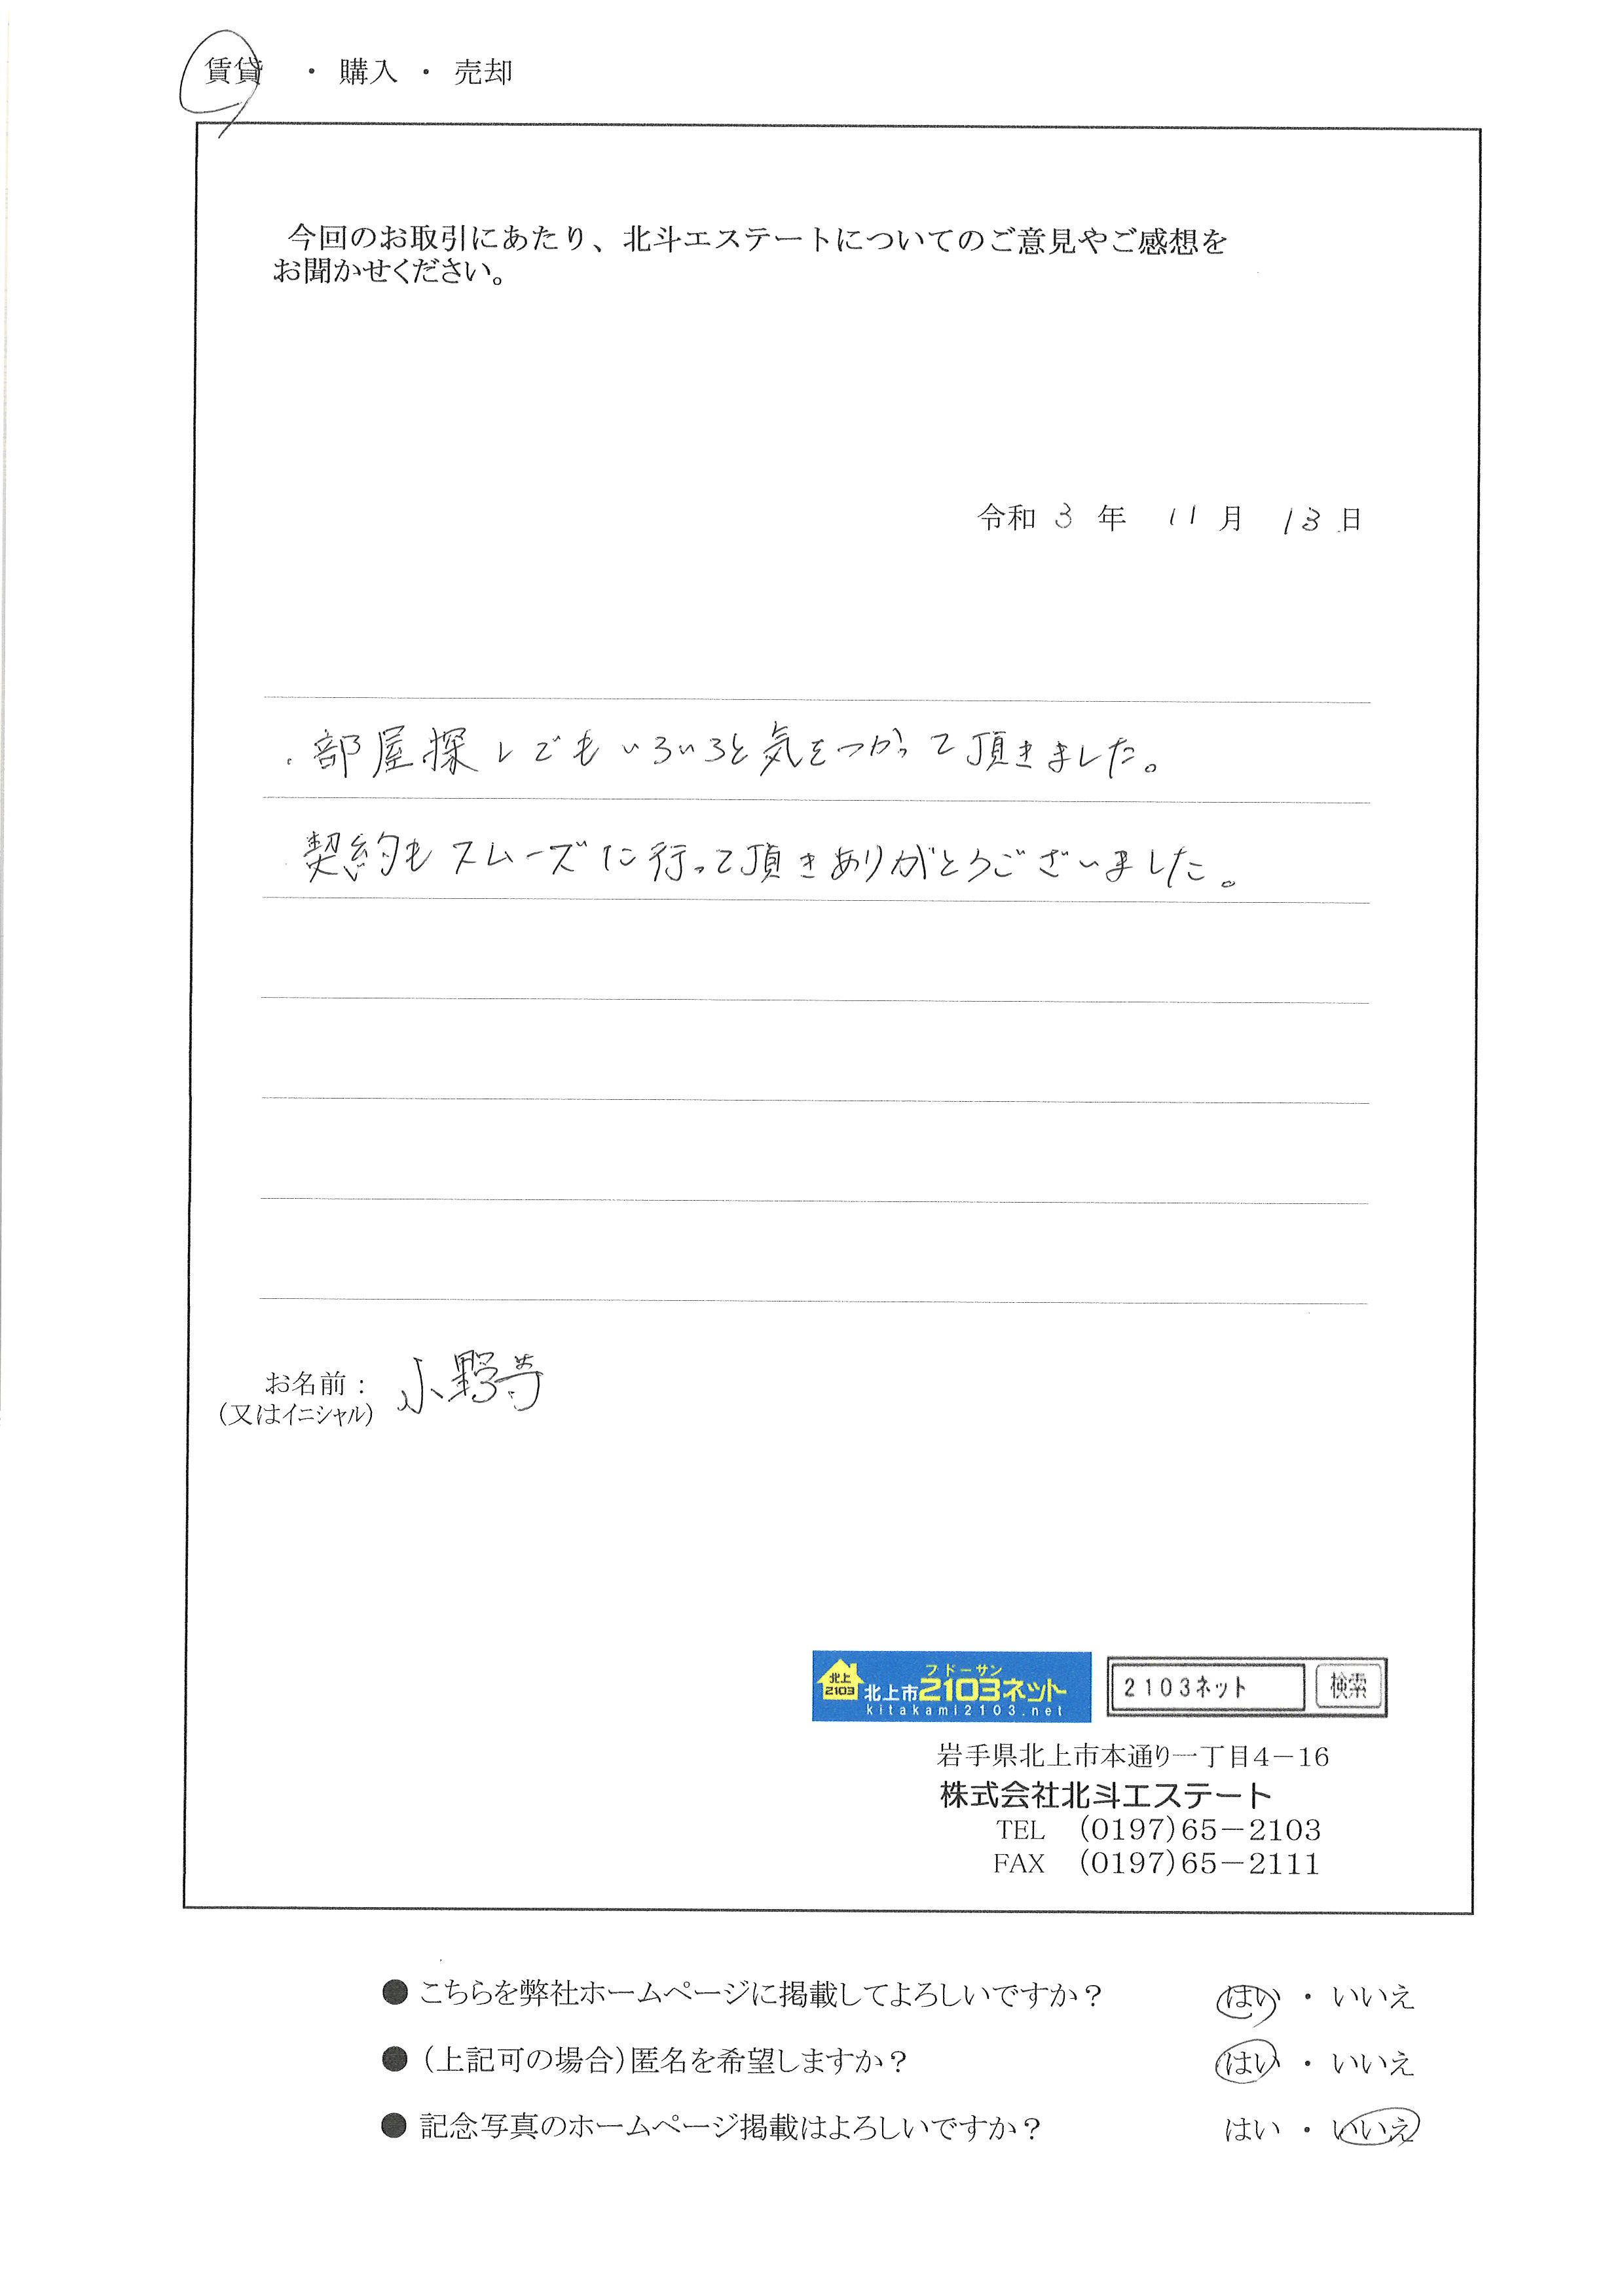 賃貸 ・ 購入 ・ 売却
今回のお取引にあたり、北斗エステートについてのご意見やご感想を
お聞かせください。
令和 3 年 11 月 13 日
・部屋探しでもいろいろと気をつかって頂きました。
契約もスムーズに行って頂きありがとうございました。
お名前： 小野寺
（又はイニシャル）
北上
2103
フドーサン
北上市2103ネット
kitakami2103.net
2103ネット 検索
岩手県北上市本通り一丁目4－16
株式会社北斗エステート
TEL （0197）65－2103
FAX （0197）65－2111
● こちらを弊社ホームページに掲載してよろしいですか？ はい ・ いいえ
● （上記可の場合）匿名を希望しますか？ はい ・ いいえ
● 記念写真のホームページ掲載はよろしいですか？ はい ・ いいえ